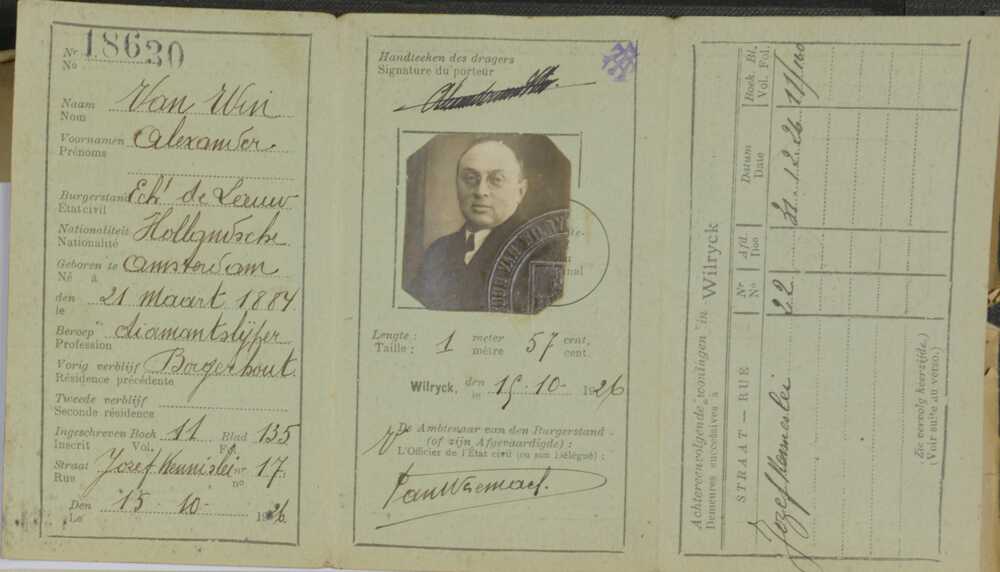 Nr 18630
No
Naam Van Win
Nom
Voornamen Alexander
Prénoms
Burgerstand Echt de Leeuw
Etat civil
Nationaliteit Hollandsche
Nationalité
Geboren te Amsterdam
Né à
den 21 Maart 1884
le
Beroep diamantslijper
Profession
Vorig verblijf Borgerhout
Résidence précédente
Tweede verblijf
Seconde résidence
Ingeschreven Boek 11 Blad 135
Inscrit Vol. Fol.
Straat Jozef Hennislei nr 17.
Rue no
Den 15-10- 1926
Le
Handteeken des dragers
Signature du porteur
Lengte : 1 meter 57 cent.
Taille : mètre cent.
Wilryck, den 15-10- 1926
le
De Ambtenaar van den Burgerstand
(of zijn Afgevaardigde) :
L'Officier de l'État civil (ou son Délégué) :
Achtereenvolgende woningen in Wilryck
Demeures successives à
STRAAT — RUE Nr Afd Datum Boek. Bl.
No Don Date Vol. Fol.
Jozef 22 31.12.26 11/100
Zie vervolg keerzijde.)
(Voir suite au verso.)